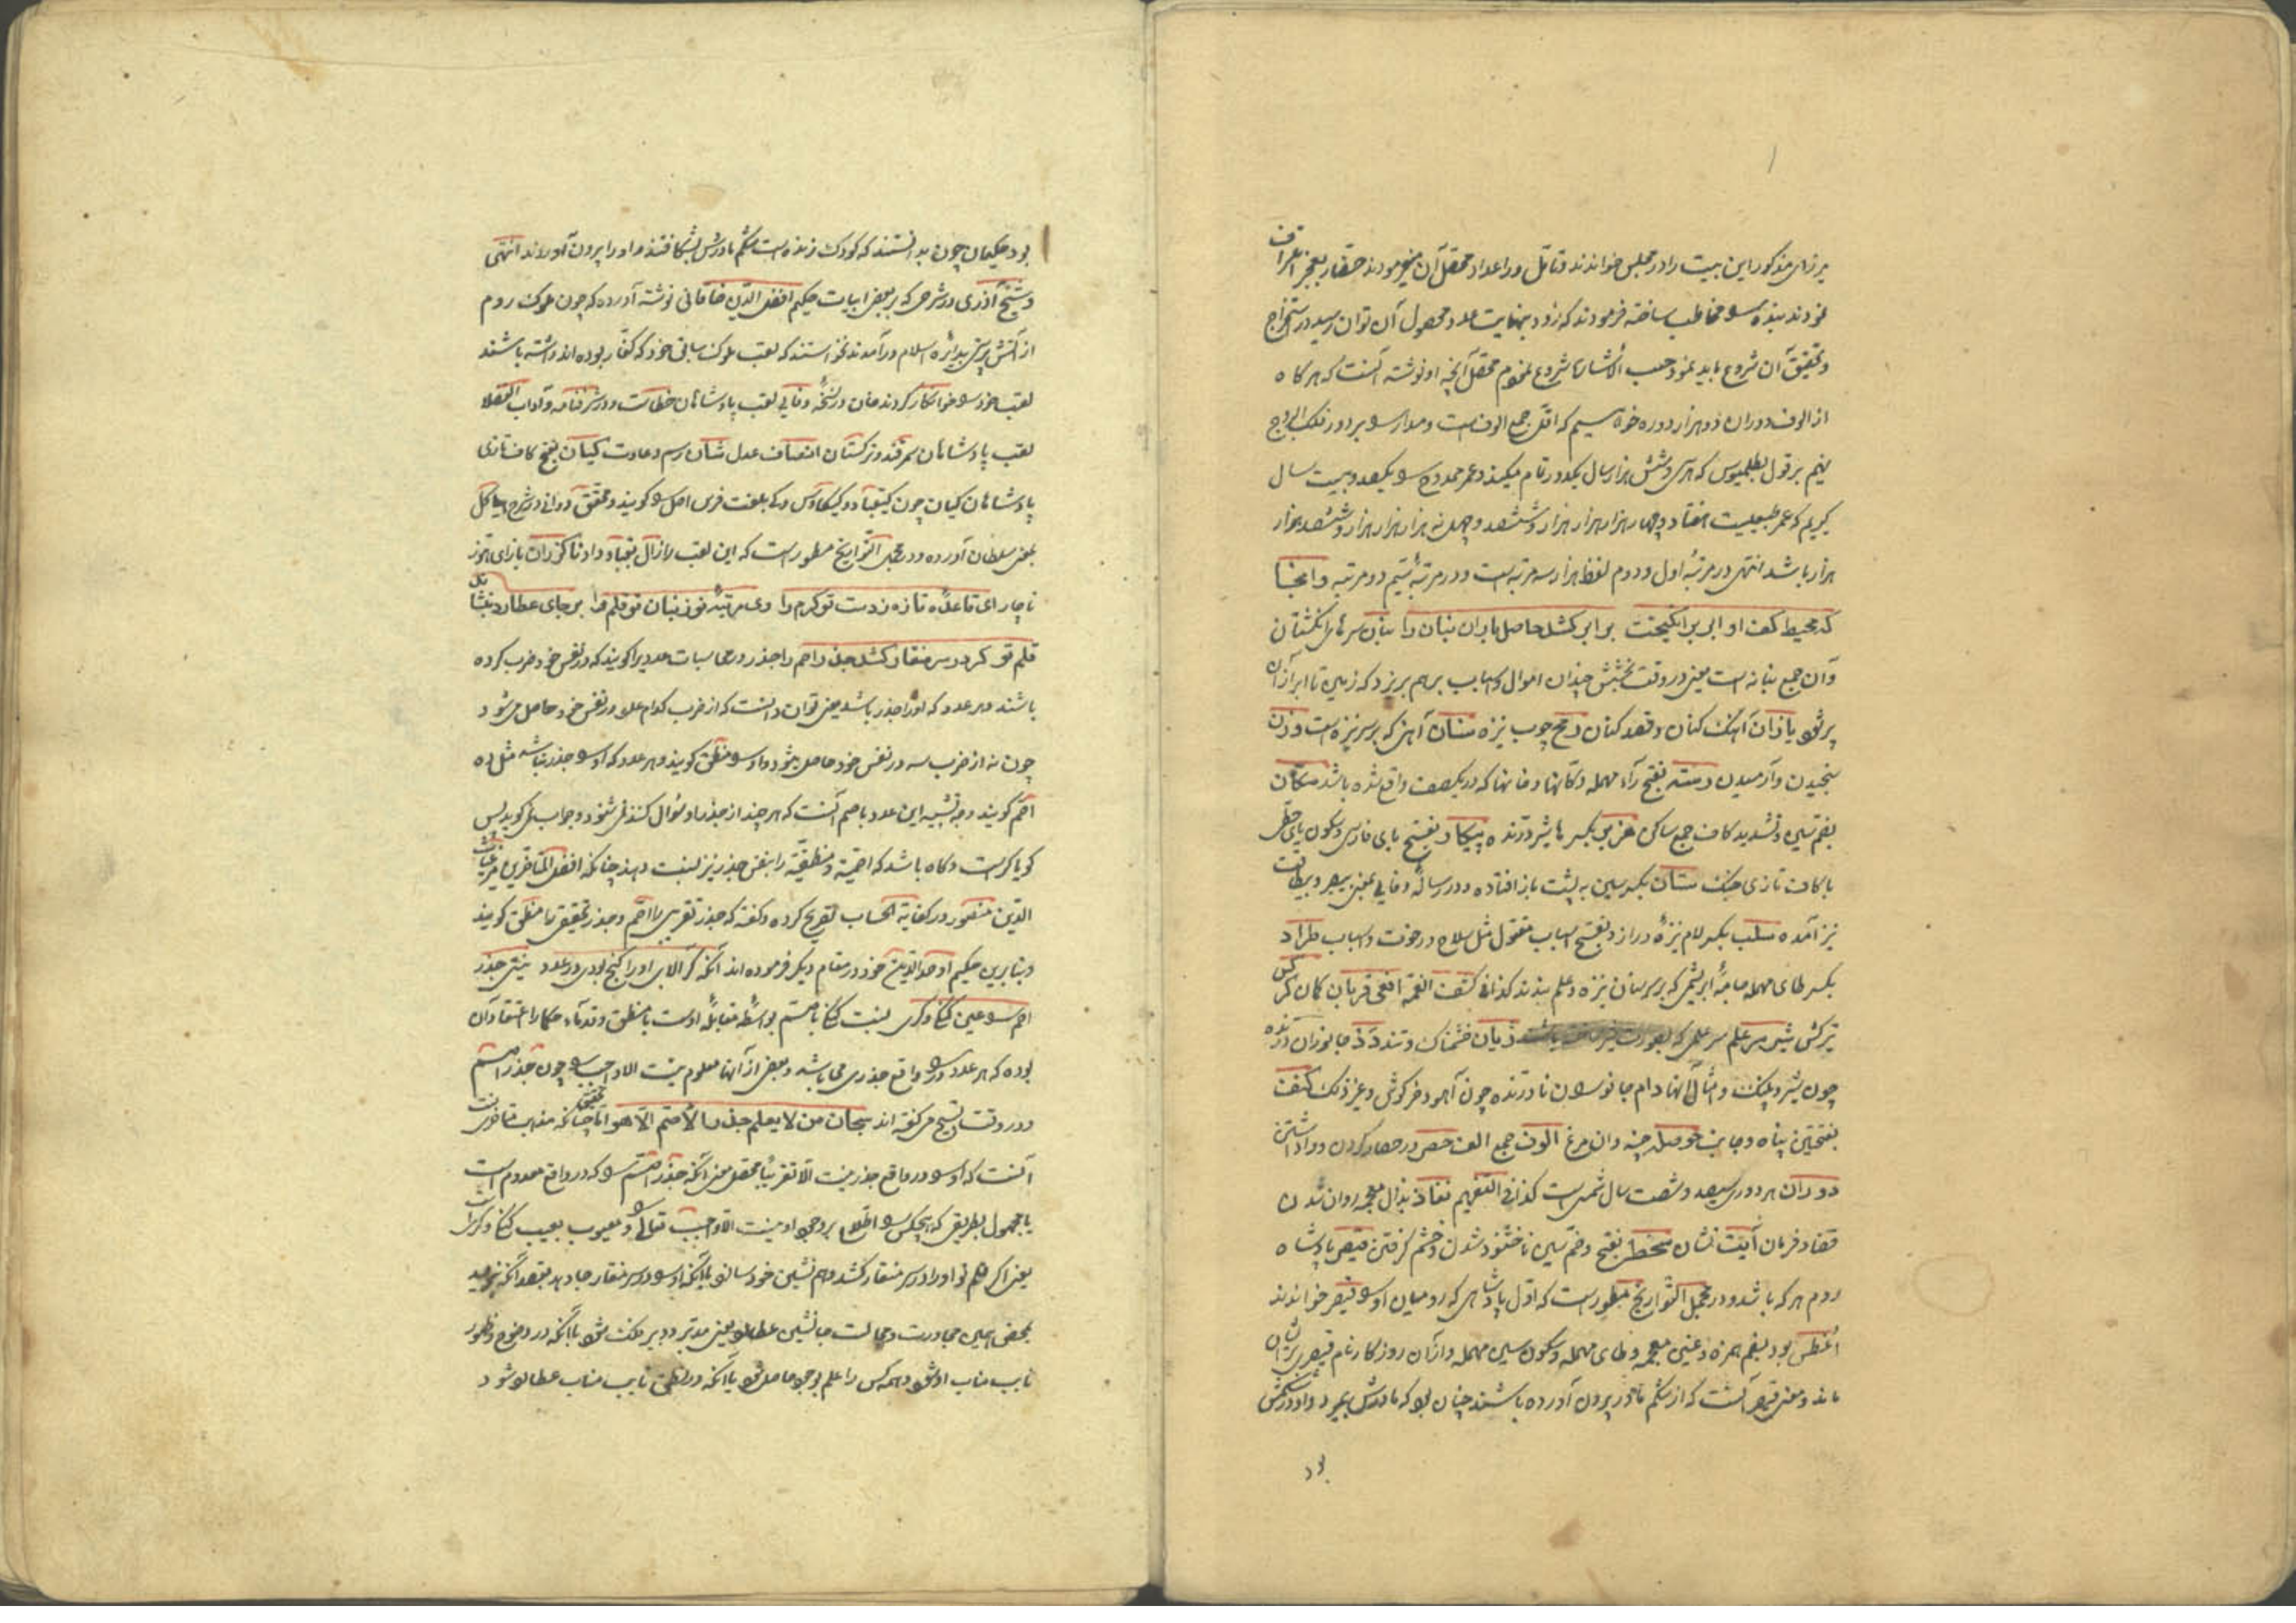 میرزای مذکور این بیت را در مجلس خواندند و تأمل در اعداد محصل آن میفرمودند حضار بعجز اعتراف
نمودند بنده را مخاطب ساخته فرمودند که زود بنهایت عدد محصول آن توان رسید در استخراج
و تحقیق آن شروع باید نمود حسب الاشاره شروع نمودم محصل آنچه او نوشته آنست که هر کاه
از الوف دوران دو هزار دوره خواهیم که اقل جمع الوفست و مدار را بر دور فلک البروج
نهیم بر قول بطلمیوس که بسی و شش هزار سال یکدور تمام میکند و عمر ممدوح را یکصد و بیست سال
کیریم که عمر طبیعیست هفتاد و چهار هزار هزار هزار و ششصد و چهل نه هزار هزار و ششصد هزار
هزار باشد انتهی در مرتبه اول و دوم لفظ هزار سه مرتبه است و در مرتبه سیم دو مرتبه و انجا
که محیط کف او ابر برانکیخت بر ابر کشد حاصل باران بنان را بنان سرهای انکشتان
و آن جمع بنانه است یعنی در وقت بخشش چندان اموال و اسباب برهم بریزد که زمین تا ابر از آن
پر شود یازان آهنک کنان و قصد کنان رمح چوب نیزه سنان آهن که بر سر نیزه است وزن
سنجیدن و آرمیدن رسته بفتح راء مهمله دکانها و خانها که در یکصف واقع شده باشد سکان
بضم سین و تشدید کاف جمع ساکن هزبر بکسر ها شیر درنده پیکار بفتح بای فارسی و سکون یای حطی
با کاف تازی جنک ستان بکسر سین به پشت باز افتاده و در رساله وفایی بمعنی بیصبر و بیطاقت
نیز آمده سلب بکسر لام نیزه دراز و بفتح اسباب مقتول مثل سلاح و رخوت و اسباب طراد
بکسر طای مهمله جامه ابریشمی که بر سر سنان نیزه و علم بندند کذا فی کشف الغمه افعی قربان کمان ترکش
تیرکش شیر سر علم سر علمی که بصورت شیر ساخته باشند ژیان خشمناک و تند دد جانوران درنده
چون شیر و پلنک و امثال آنها دام جانوران نادرنده چون آهو و خرکوش و غیر ذلک کنف
بفتحتین پناه و جانب حوصله چینه دان مرغ الوف جمع الف حصر در حصار کردن و واداشتن
دوران هر دور سیصد و شصت سال شمسیست کذا فی التفهیم نفاذ بذال معجمه روان شدن
قضا و فرمان آیت نشان سخط بفتح و ضم سین ناخشنود شدن و خشم کرفتن قیصر پادشاه
روم هر که باشد و در مجمل التواریخ مسطور است که اول پادشاهی که رومیان او را قیصر خواندند
اغطس بود بضم همزه و غین معجمه و طای مهمله و سکون سین مهمله و از آن روزکار نام قیصر بر ایشان
ماند و معنی قیصر آنست که از شکم مادر بیرون آورده باشند چنان بود که مادرش بمرد و او در شکمش
بود
بود حکیمان چون بدانستند که کودک زنده است شکم مادرش بشکافتند و او را بیرون آوردند انتهی
و شیخ آذری در شرحی که بر بعض ابیات حکیم افضل الدین خاقانی نوشته آورده که چون ملوک روم
از آتش پرستی بدائره اسلام درآمدند نخواستند که لقب ملوک سابق خود که کفار بوده اند داشته باشند
لقب خود را خوانکار کردند خان در نسخه وفایی لقب پادشاهان خطاست و در شرفنامه و آداب الفضلا
لقب پادشاهان سمرقند و ترکستان انصاف عدل شان رسم و عادت کیان بفتح کاف تازی
پادشاهان کیان چون کیقباد و کیکاوس و کی بلغت فرس اصل را کویند و محقق دوانی در شرح هیاکل
بمعنی سلطان آورده و در مجمل التواریخ مسطور است که این لقب را زال بقباد داد ناکزران بازای هوز
ناچار ای قاعده تازه ز دست تو کرم را وی مرتبه نو ز بنان تو قلم را بر جای عطارد بنشاند
قلم تو کر در سر منقار کشد جذر اصم را جذر در محاسبات عددیرا کویند که در نفس خود ضرب کرده
باشند و هر عدد که او را جذر باشد یعنی توان دانست که از ضرب کدام عدد در نفس خود حاصل میشود
چون نه از ضرب سه در نفس خود حاصل میشود او را منطق کویند و هر عدد که او را جذر نباشد مثل ده
اصم کویند وجه تشبیه این عدد باصم آنست که هر چند از جذر او سؤال کنند نمی شنود و جواب نمی کوید پس
کویا کر است و کاه باشد که اصمیة و منطقیة را بنفس جذر نیز نسبت دهند چنانکه افضل المتاخرین میر غیاث
الدین منصور در کفایة الحساب تصریح کرده و کفته که جذر تقریبی را اصم و جذر تحقیقی را منطق کویند
و بنابرین حکیم اوحد الدین خود در مقام دیکر فرموده اند آنکه کر آلای او را کنج بودی در عدد نیستی جذر
اصم را عین کنکی و کری نسبت کنکی باصم بواسطه مقابله اوست با منطق و قدماء حکما را اعتقاد آن
بوده که هر عدد را در واقع جذری می باشد و بعضی از آنها معلوم نیست الا واجب را چون جذر اصم
و در وقت تسبیح می کفته اند سبحان من لا یعلم جذر الاصم الا هو اما تحقیق چنانکه مذهب متاخرینست
آنست که او را در واقع جذر نیست الا تقریبا محصل معنی آنکه جذر اصم را که در واقع معدوم است
یا مجهول بطریقی که هیچکس را اطلاع بر وجود او نیست الا واجب تعالی را و معیوب بعیب کنکی و کریست
یعنی اکر قلم تو او را در سر منقار کشد و هم نشین خود سازد یا آنکه او را در سر منقار جا دهد بقصد آنکه بنویسد
بمحض همین مجاورت و مجالست جانشین عطارد یعنی مدبر و دبیر فلک شود یا آنکه در وضوح و ظهور
نایب مناب او شود و همه کس را علم بوجود حاصل شود یا آنکه در نطق نایب مناب عطارد شود